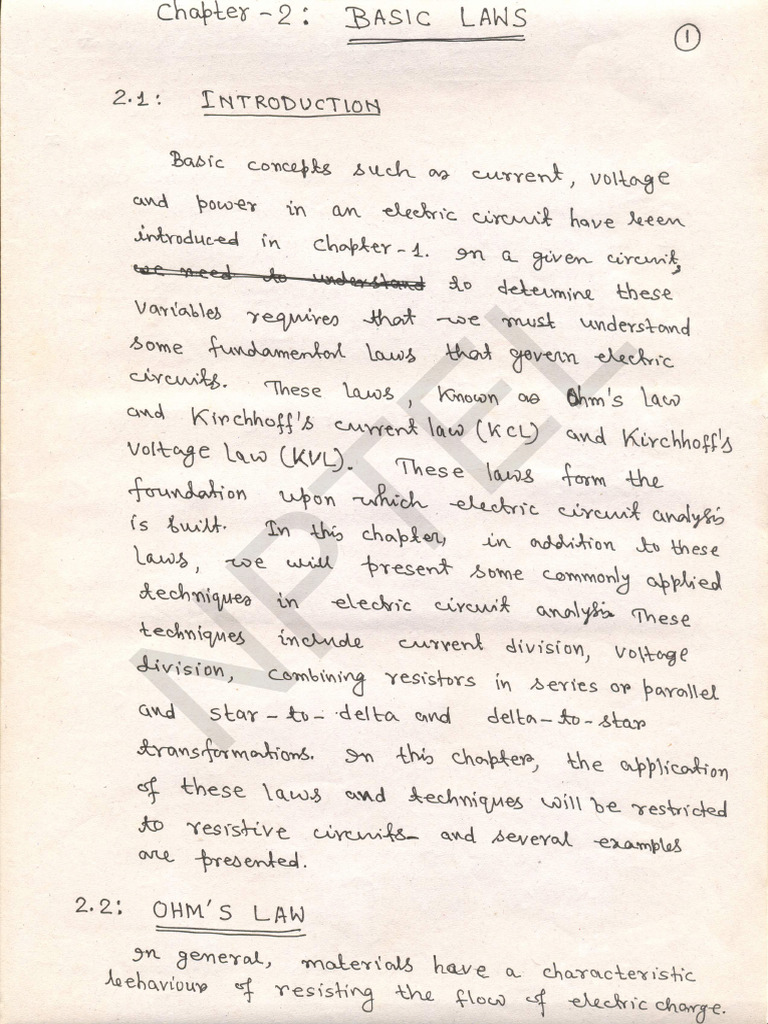 Chapter-2: BASIC LAWS
1
2.1: INTRODUCTION
Basic concepts such as current, voltage
and power in an electric circuit have been
introduced in Chapter-1. In a given circuit,
we need to understand to determine these
variables requires that we must understand
some fundamental laws that govern electric
circuits. These laws, known as Ohm's law
and Kirchhoff's current law (KCL) and Kirchhoff's
voltage law (KVL). These laws form the
foundation upon which electric circuit analysis
is built. In this chapter, in addition to these
laws, we will present some commonly applied
techniques in electric circuit analysis. These
techniques include current division, voltage
division, combining resistors in series or parallel
and star-to-delta and delta-to-star
transformations. In this chapter, the application
of these laws and techniques will be restricted
to resistive circuits and several examples
are presented.
2.2: OHM'S LAW
In general, materials have a characteristic
behaviour of resisting the flow of electric charge.
NPTEL